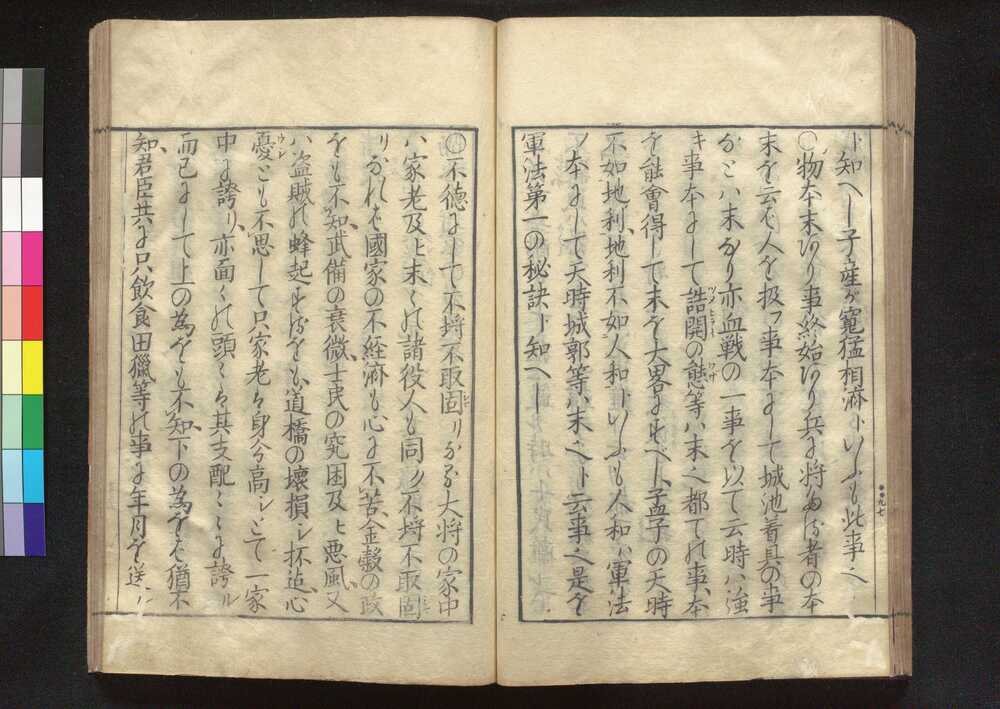 ト知へし子産が寛猛相済トいふも此事也
○物本末あり事終始あり兵に将たる者の本
末を云ば人を扱フ事本にして城池着具の事
などハ末なり亦血戦の一事を以て云時ハ強
キ事本にして誥開の態等ハ末也都ての事、本
を能會得して末を大畧にすべし孟子の天時
不如地利地利不如人和といふも人和ハ軍法
ノ本にして天時城郭等ハ末也ト云事也是を
軍法第一の秘訣ト知へし
○不徳にして不埒不取固リなる大将の家中
ハ家老及ヒ末々の諸役人も同ク不埒不取固
リなれば國家の不経済も心に不苦、金穀の政
をも不知武備の衰微、士民の究困及ヒ悪風又
ハ盗賊の蜂起するをも、道橋の壊損シ抔迠心
憂とも不思して只家老は身分高シとて一家
中に誇り、亦面々の頭々は其支配々々に誇ル
而已にして上の為をも不知下の為をば猶不
知、君臣共に只飲食田獵等の事に年月を送ル